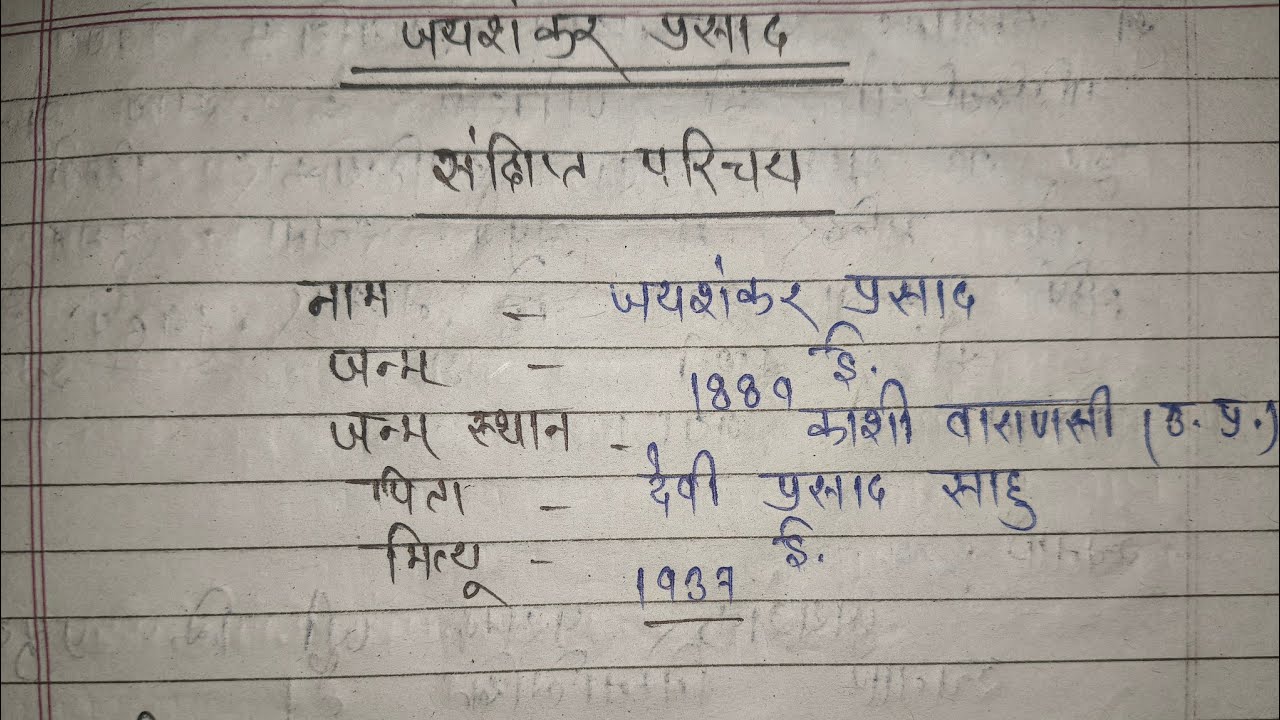 जयशंकर प्रसाद
संक्षिप्त परिचय
नाम - जयशंकर प्रसाद
जन्म - 1889 ई.
जन्म स्थान - काशी वाराणसी (उ. प्र.)
पिता - देवी प्रसाद साहु
मित्यू - 1937 ई.